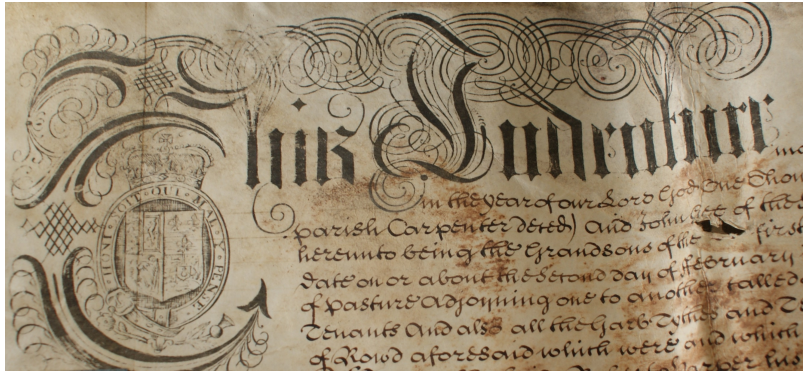 This Indenture
HONI · SOIT · QUI · MAL · Y · PENSE
in the year of our Lord God One Thou
parish Carpenter deced) And John Lee of the
hereunto being the Grandsons of the first
date on or about the Second day of February
of Pasture Adjoyning one to another Called
Tenants And also all the Garb Tythes and
of Rowd aforesaid which were and which